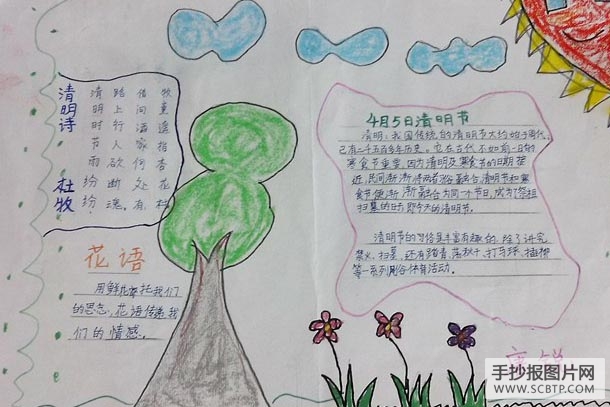 清明诗 杜牧
清明时节雨纷纷,
路上行人欲断魂。
借问酒家何处有
牧童遥指杏花村
花语
用鲜花寄托我们
的思念,花语传 我
们的情感。
4月5日清明节
清明:我国传统的清明节大约始于周代,
已有二千五百多年历史。它在古代不如前一日的
寒食节重要,因为清明及寒食节的日期接
近,民间渐渐将两者 俗融合,清明节和寒
食节便渐渐融合为同一个节日,成为祭祖
扫墓的日子,即今天的清明节。
清明节的习俗是丰富有趣的,除了讲究
禁火、扫墓,还有踏青、荡秋千、打马球、插柳
等一系列风俗体育活动。
手抄报图片网
WWW.SCBTP.COM